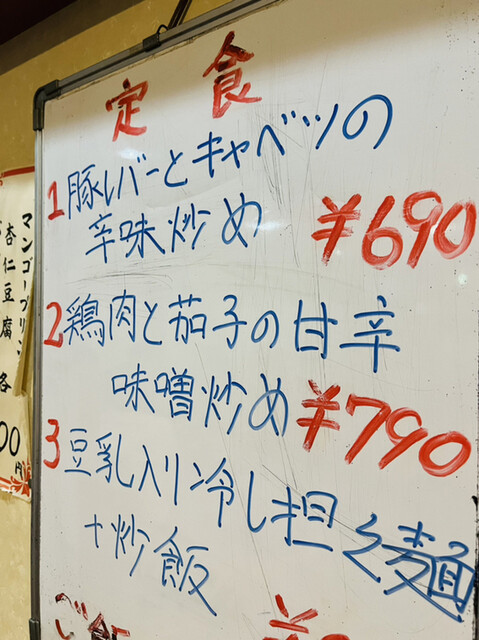 定食
1 豚レバーとキャベツの
辛味炒め ¥690
2 鶏肉と茄子の甘辛
味噌炒め ¥790
3 豆乳入り冷し担々麺
+炒飯
マンゴープリン
杏仁豆腐
各
00
円